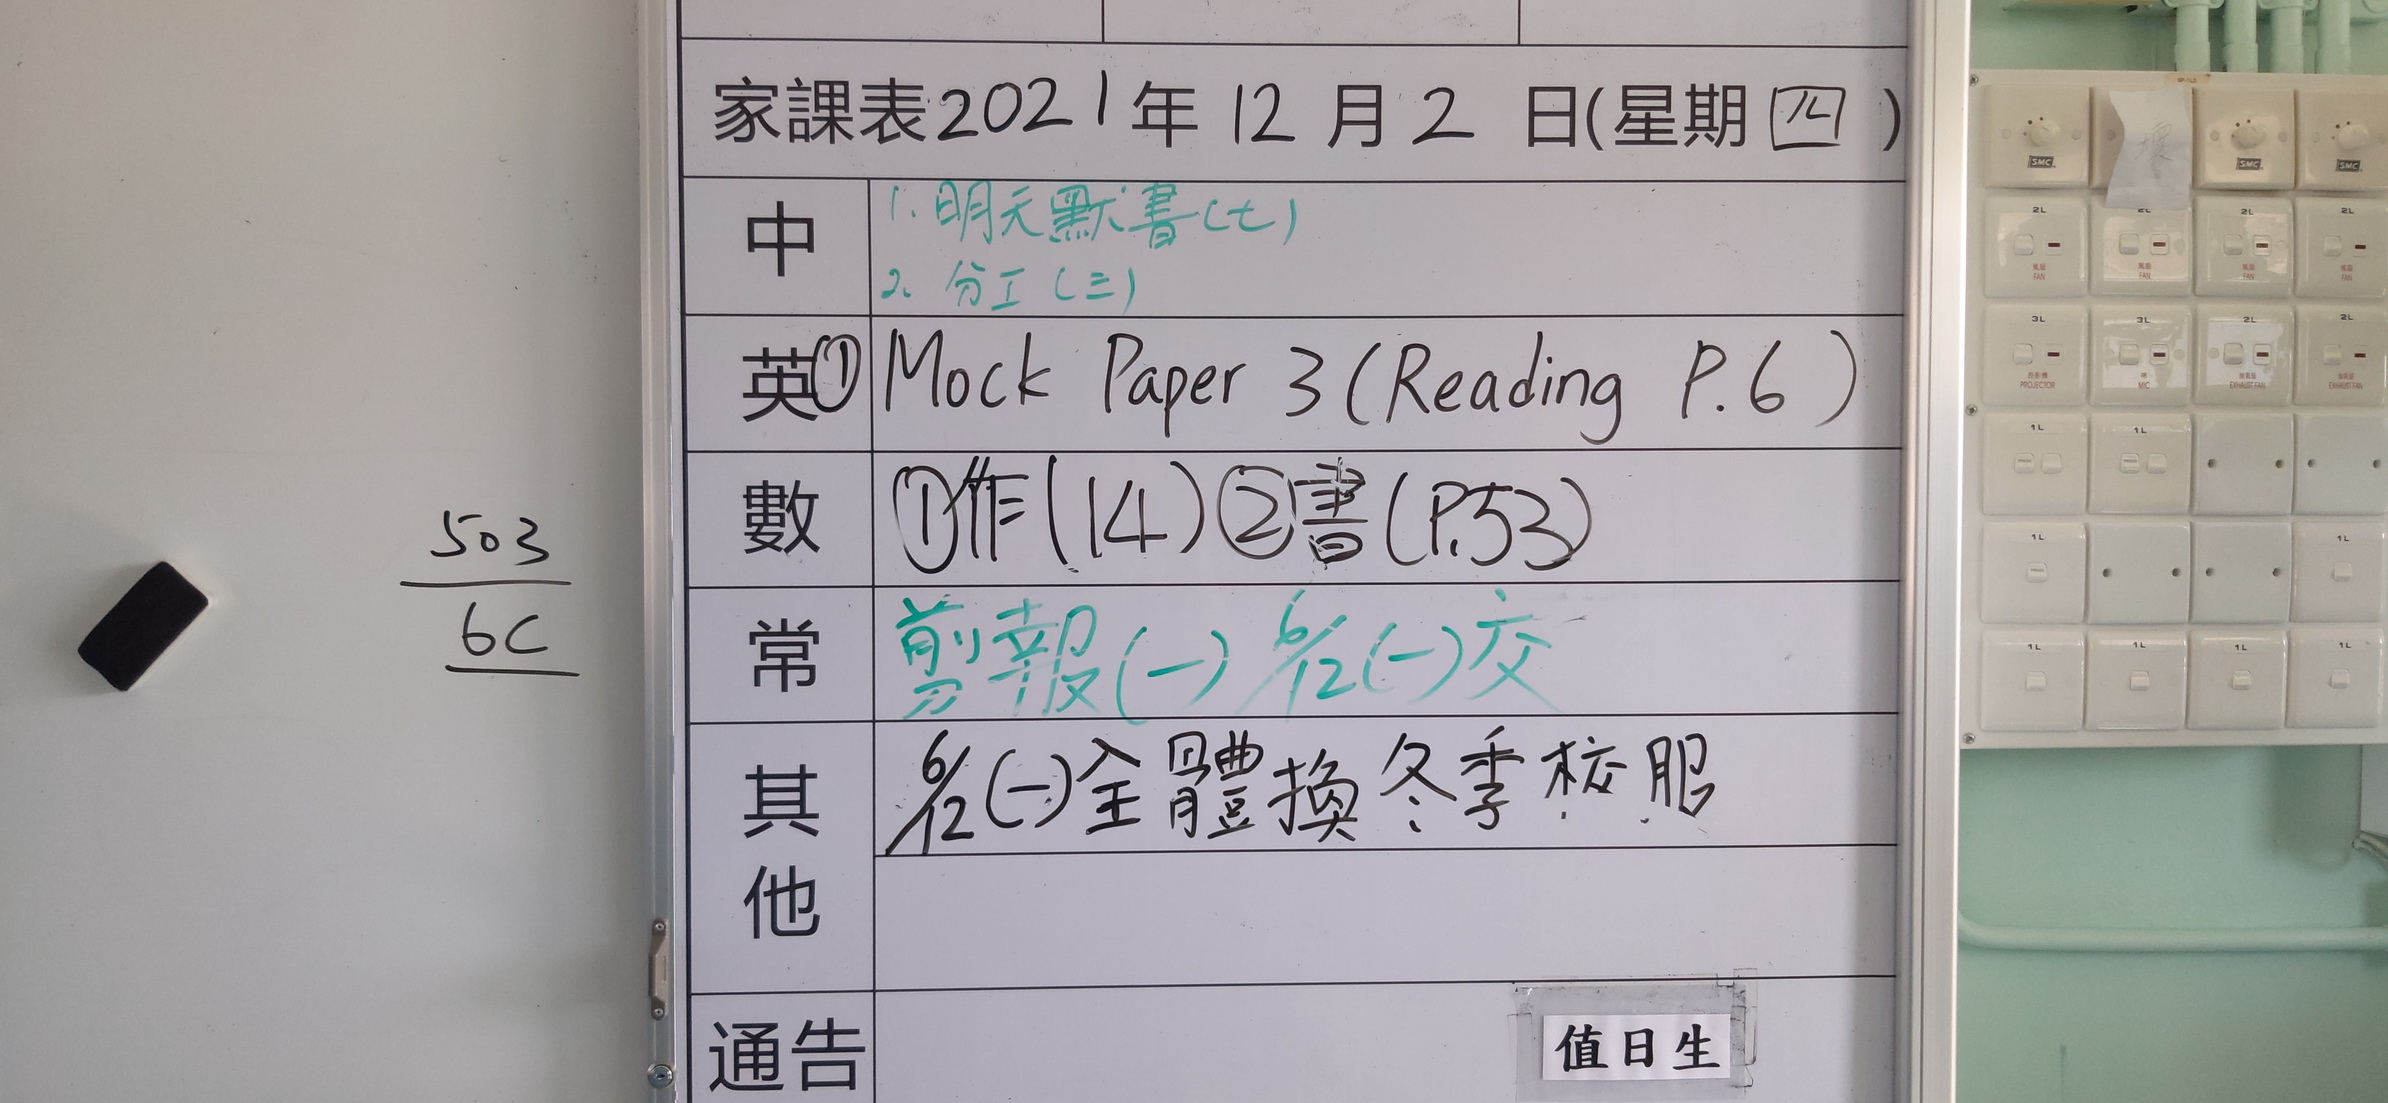 家課表2021年12月2日(星期四)
中
1. 明天默書(七)
2. 分工(三)
英① Mock Paper 3 (Reading P.6)
數 ①作(14) ②書(P.53)
常 剪報(一) 6/12(一)交
其他 6/12(一)全體換冬季校服
通告
值日生
503
6C
壞
SMC SMC SMC
2L 2L 2L 2L
風扇 風扇 風扇 風扇
FAN FAN FAN FAN
3L 3L 2L 2L
PROJECTOR MIC EXHAUST FAN EXHAUST FAN
1L 1L
1L 1L
1L 1L 1L 1L